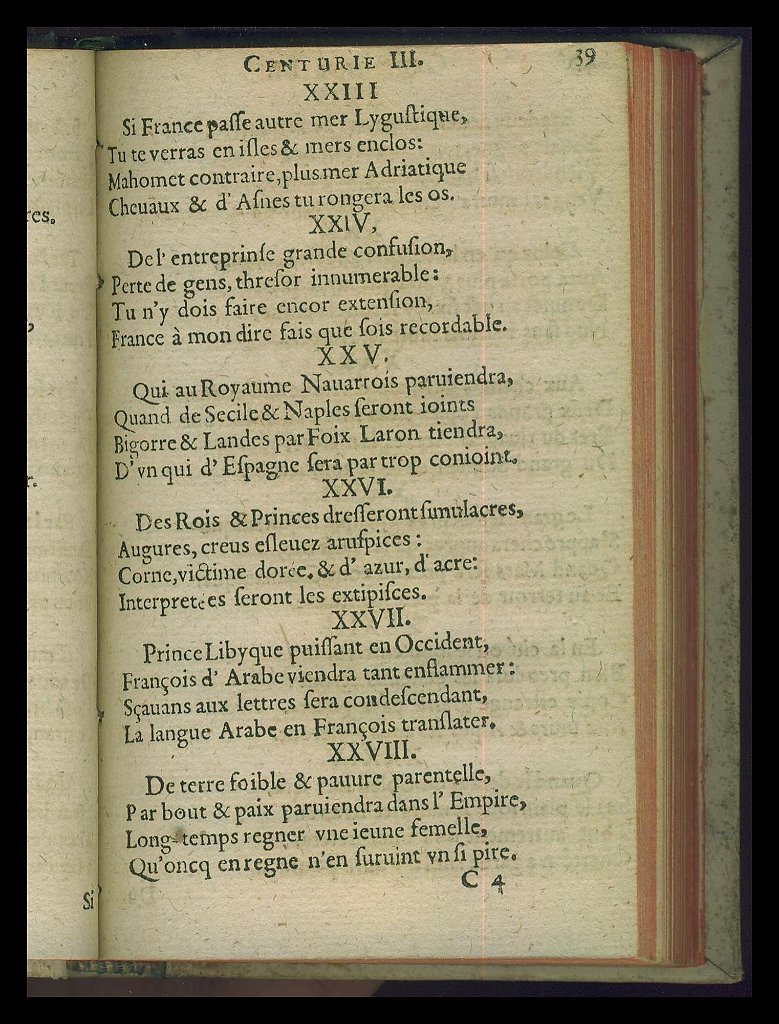 res.
,
r.
Si
CENTURIE III. 39
XXIII
Si France paſſe autre mer Lyguſtique,
Tu te verras en iſles & mers enclos:
Mahomet contraire, plus mer Adriatique
Cheuaux & d' Aſnes tu rongera les os.
XXIV,
De l' entreprinſe grande confuſion,
Perte de gens, threſor innumerable:
Tu n'y dois faire encor extenſion,
France à mon dire fais que ſois recordable.
XXV.
Qui au Royaume Nauarrois paruiendra,
Quand de Secile & Naples ſeront ioints
Bigorre & Landes par Foix Laron tiendra,
D' vn qui d' Eſpagne ſera par trop conioint.
XXVI.
Des Rois & Princes dreſſeront ſimulacres,
Augures, creus eſleuez aruſpices:
Corne, victime dorée. & d' azur, d' acre:
Interpretees ſeront les extipiſces.
XXVII.
Prince Libyque puiſſant en Occident,
François d' Arabe viendra tant enflammer:
Sçauans aux lettres ſera condeſcendant,
La langue Arabe en François tranſlater.
XXVIII.
De terre foible & pauure parentelle,
Par bout & paix paruiendra dans l' Empire,
Long-temps regner vne ieune femelle,
Qu'oncq en regne n'en ſuruint vn ſi pire.
C 4